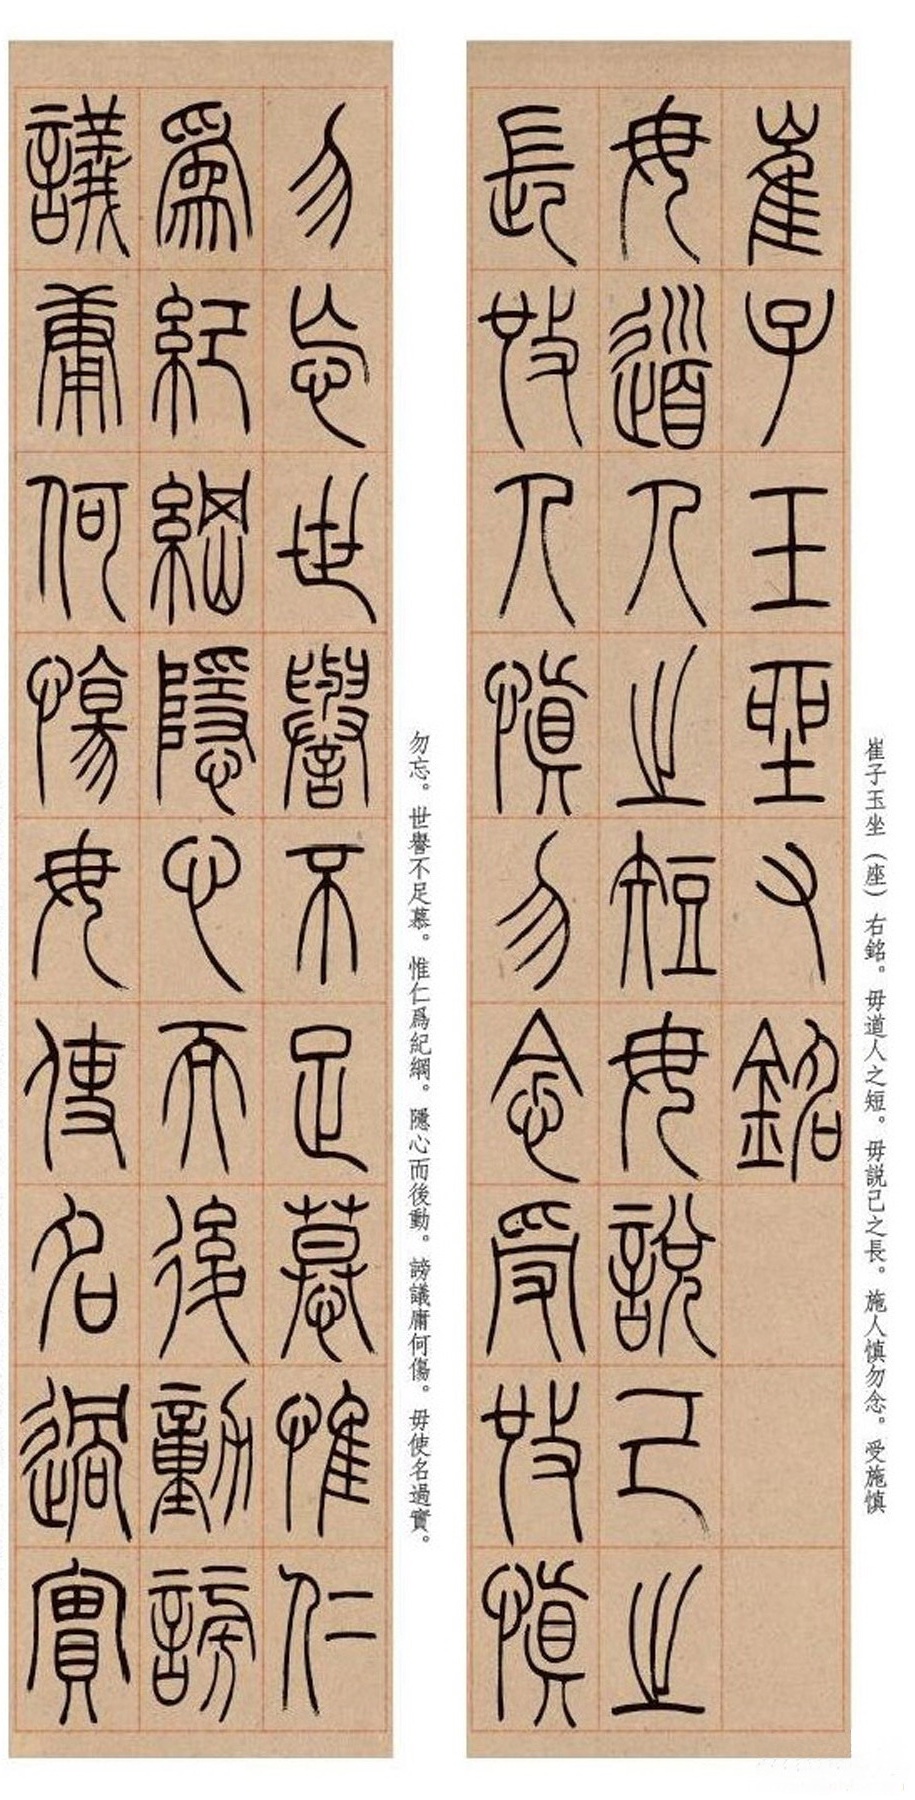 崔子玉坐又銘
毋道人之短毋說己之
長施人慎勿念受施慎
崔子玉坐（座）右銘。毋道人之短。毋説己之長。施人慎勿念。受施慎
勿忘世譽不足慕惟仁
爲紀綱隱心而後動謗
議庸何傷毋使名過實
勿忘。世譽不足慕。惟仁爲紀綱。隱心而後動。謗議庸何傷。毋使名過實。